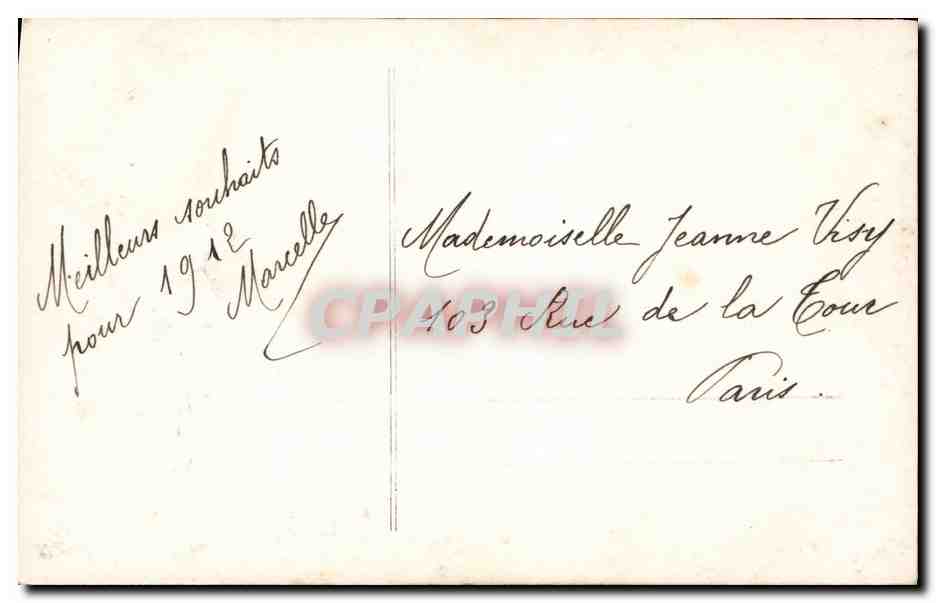 Meilleurs souhaits
pour 1912
Marcelle
Mademoiselle Jeanne Visy
103 Rue de la Tour
Paris.
CPAPHIL